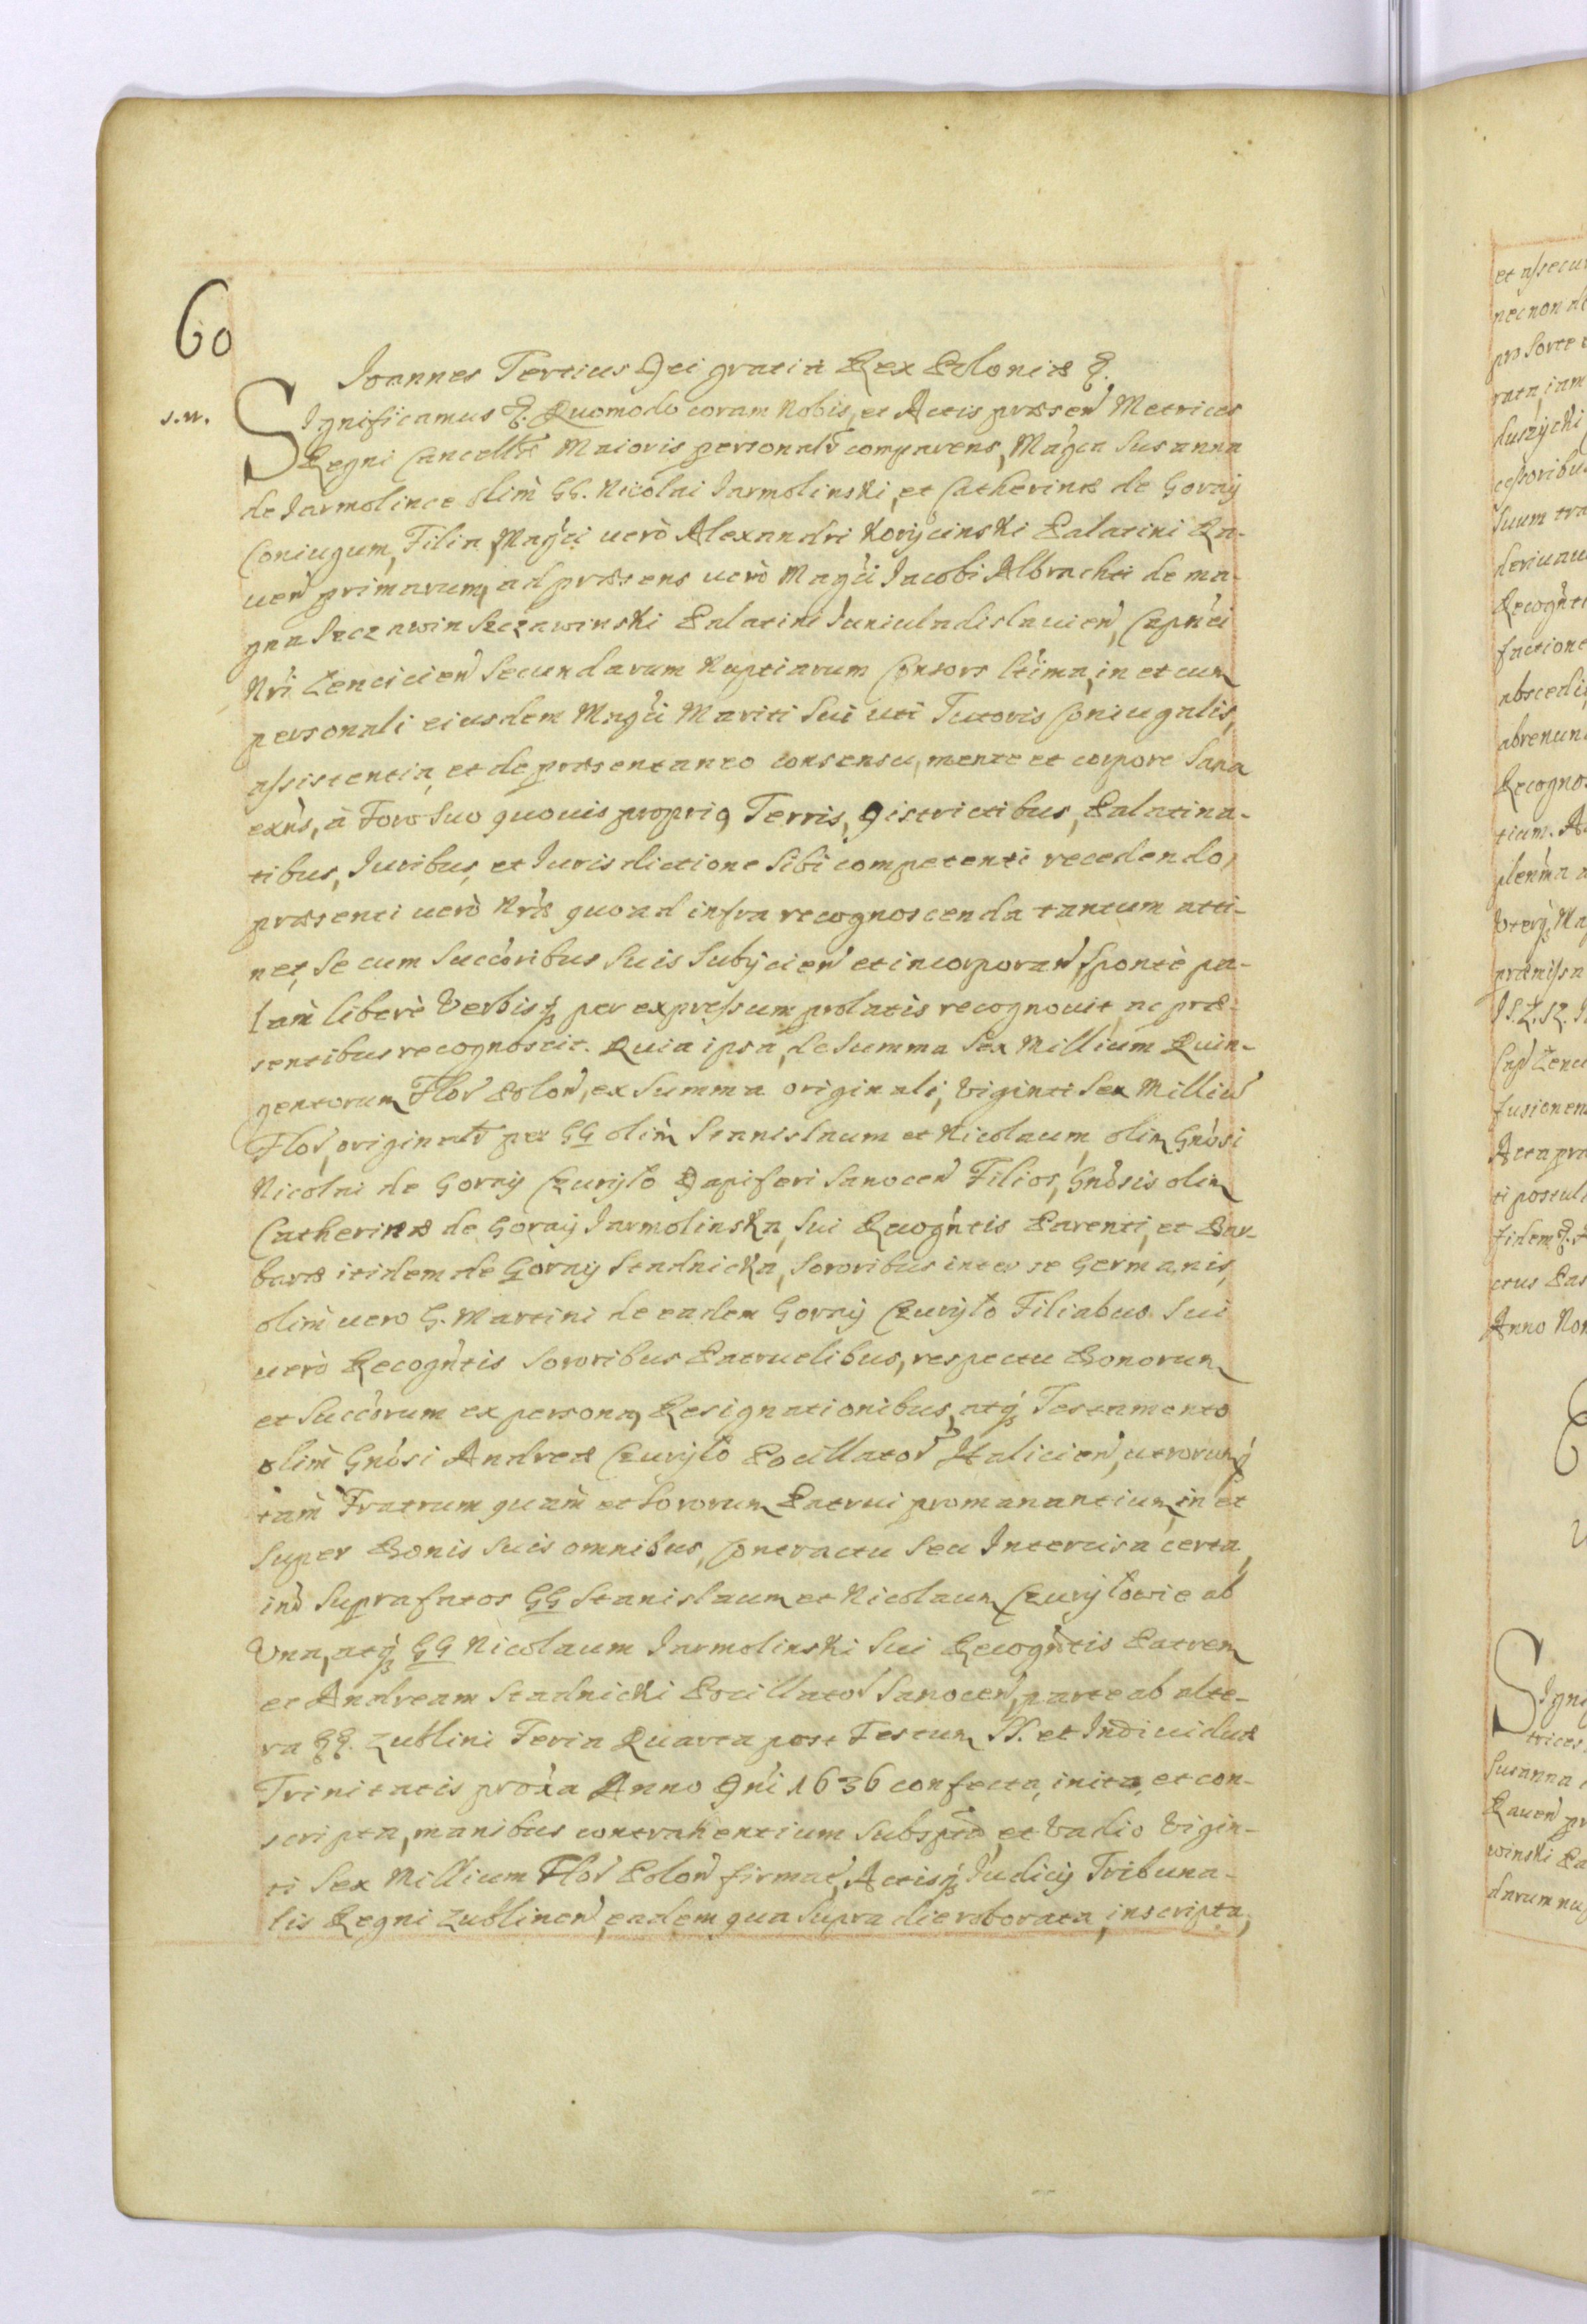 60
Ioannes Tertius Dei gratia Rex Poloniæ &.
s.w.
Significamus &. Quomodo coram Nobis, et Actis præsen̄ Metrices
Regni Cancellr̄æ Maioris personalr̄ comparens, Magca Susanna
de Jarmolince olim GG. Nicolai Jarmolinski, et Catherinæ de Goraÿ
Coniugum, Filia, Magci uerò Alexandri Korycinski Palatini Ra-
uen̄ primarum, ad præsens uerò Magci Jacobi Albrachti de ma-
gna Szczawin Szczawinski Palatini Iuniuladislauien̄, Capnei
Nri Lencicien̄ Secundarum Nuptiarum Consors lt̄tima, in et cum
personali eiusdem Magci Mariti Sui uti Tutoris Coniugalis,
assistentia, et de præsentaneo consensu, mente et corpore Sana
exñs, à Foro Suo quouis proprio, Terris, Districtibus, Palatina-
tibus, Iuribus, et Iurisdictione Sibi competenti recedendo,
præsenti uerò Nræ quoad infra recognoscenda tantum atti-
net, Se cum Succoribus Suis Subijcien̄ et incorporan̄, Sponte pa-
lam liberè Verbisq; per expressum prolatis recognouit, ac præ-
sentibus recognoscit. Quia ipsa, de Summa Sex Millium Quin-
gentorum Flor̄ Polon̄, ex Summa originali, Viginti Sex Milliū
Flor̄, originalr̄ per GG olim Stanislaum et Nicolaum, olim Gnosi
Nicolai de Goraÿ Czuryło Dapiferi Sanocen̄ Filios, Gnosis olim
Catherinæ de Goraÿ Jarmolinska, Sui Recogntis Parenti, et Bar-
baræ itidem de Goraÿ Stadnicka, Sororibus inter se Germanis,
olim uero G. Martini de eadem Goraÿ Czuryło Filiabus Sui
uerò Recogntis Sororibus Patruelibus, respectu Bonorum
et Succorum ex persona, Resignationibus, atq; Testamento
olim Gnosi Andreæ Czuryło Pocillator̄ Halicien̄, utrorumq;
tam Fratrum quam et Sororum Patrui promanantium, in et
Super Bonis Suis omnibus, Contractu Seu Intercisa certa,
int̄ Suprafatos GG Stanislaum et Nicolaum Czuryłowie ab
Vna, atq; GG Nicolaum Jarmolinski Sui Recogntis Patrem
et Andream Stadnicki Pocillator̄ Sanocen̄, parte ab alte-
ra GG. Lublini Feria Quarta post Festum SS. et Indiuiduæ
Trinitatis proxa Anno Dni 1636 confecta, inita, et con-
scripta, manibus contrahentium Subscript̄, et Vadio Vigin-
ti Sex Millium Flor̄ Polon̄ firmat̄, Actisq; Iudicij Tribuna-
lis Regni Lublinen̄, eadem qua Supra die roborata, inscripta,
et assecu
necnon de
pro Sorte
rata, iam
duszycki
cessoribus
Suum tra
deriuau
Recognti
factione
abscedi
abrenun
Recogno
tium. A
plenma
Vterq; Ma
præmissa
Cap̄ Lenci
fusionem
Acta pra
ti postul
Fidem &.
Anno Nor
Signi
trices
Susanna
Rauen̄ pr
winski Pa
darum nup